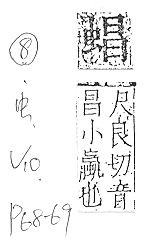 ⑧
虫
V10.
P68-69
尺良切音
昌小蠃也